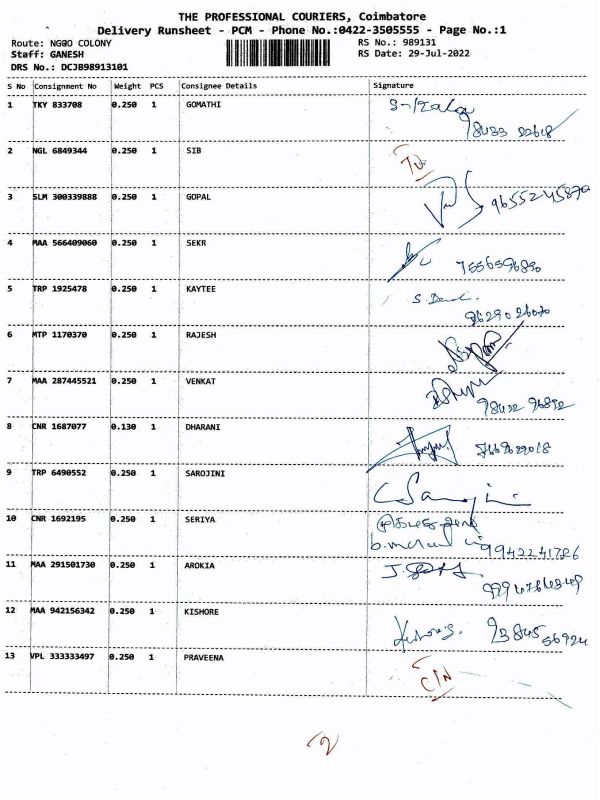 THE PROFESSIONAL COURIERS, Coimbatore
Delivery Runsheet - PCM - Phone No.:0422-3505555 - Page No.:1
Route: NGGO COLONY RS No.: 989131
Staff: GANESH RS Date: 29-Jul-2022
DRS No.: DCJB98913101
S No Consignment No Weight PCS Consignee Details Signature
1 TKY 833708 0.250 1 GOMATHI
2 NGL 6849344 0.250 1 SIB
3 SLM 300339888 0.250 1 GOPAL
9655245870
4 MAA 566409060 0.250 1 SEKR
5 TRP 1925478 0.250 1 KAYTEE
9629026070
6 MTP 1170370 0.250 1 RAJESH
7 MAA 287445521 0.250 1 VENKAT
98422 96892
8 CNR 1687077 0.130 1 DHARANI
9 TRP 6490552 0.250 1 SAROJINI
Sarojini
10 CNR 1692195 0.250 1 SERIYA
9942241786
11 MAA 291501730 0.250 1 AROKIA
12 MAA 942156342 0.250 1 KISHORE
Kishore S. 93845 56924
13 VPL 333333497 0.250 1 PRAVEENA
C/N
2